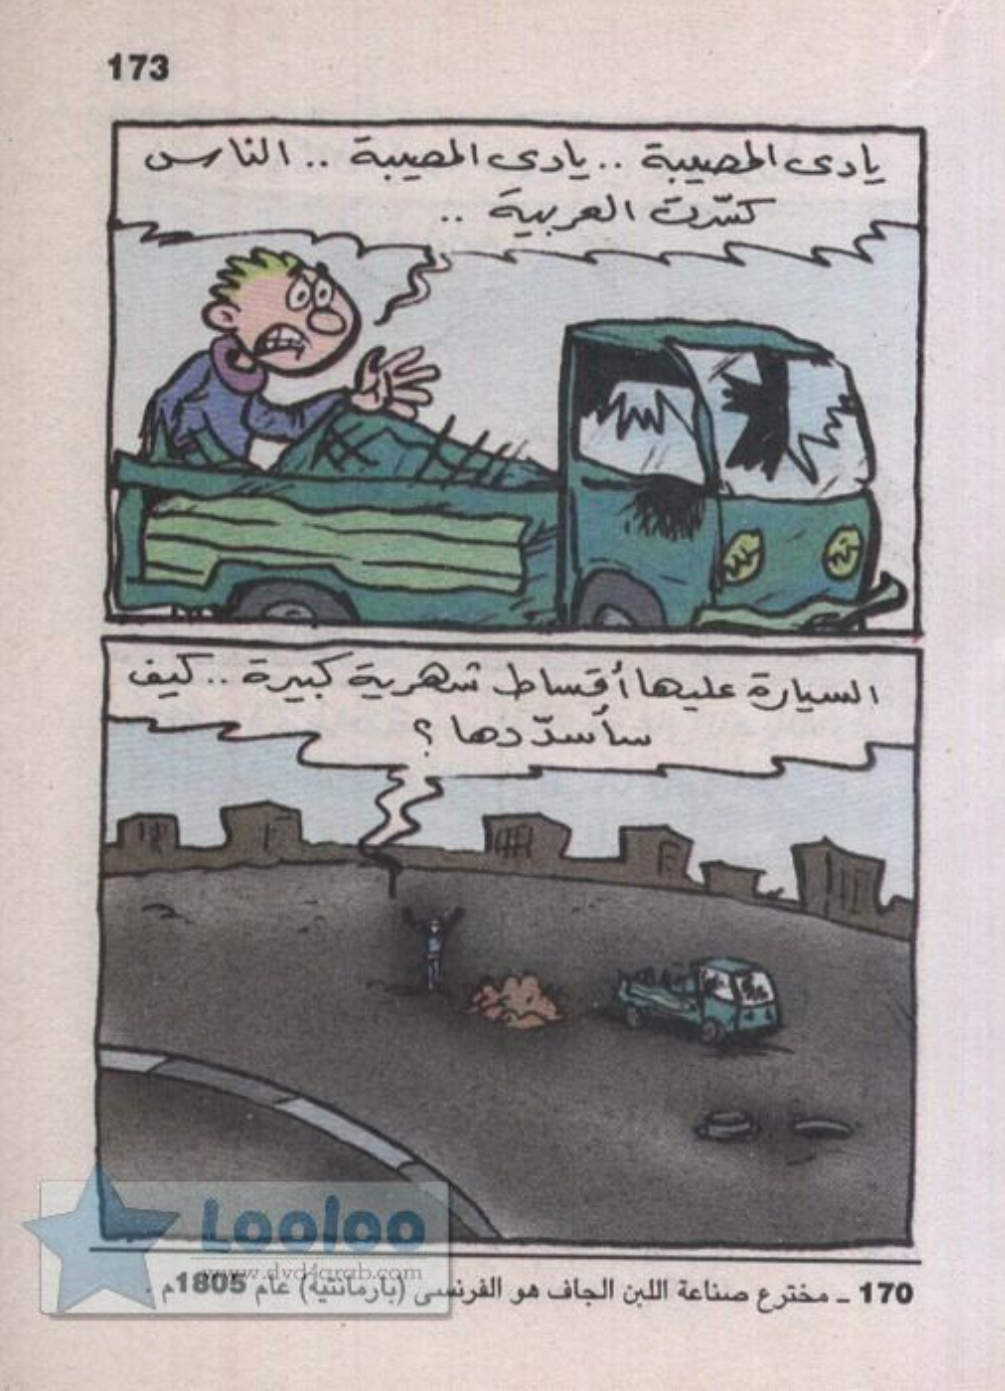 173
يادى المصيبة .. يادى المصيبة .. الناس
كسّرت العربية ..
السيارة عليها أقساط شهرية كبيرة .. كيف
سأسدّدها ؟
Looloo
www.dvd4arab.com
170 ـ مخترع صناعة اللبن الجاف هو الفرنسى (بارمانتية) عام 1805م .